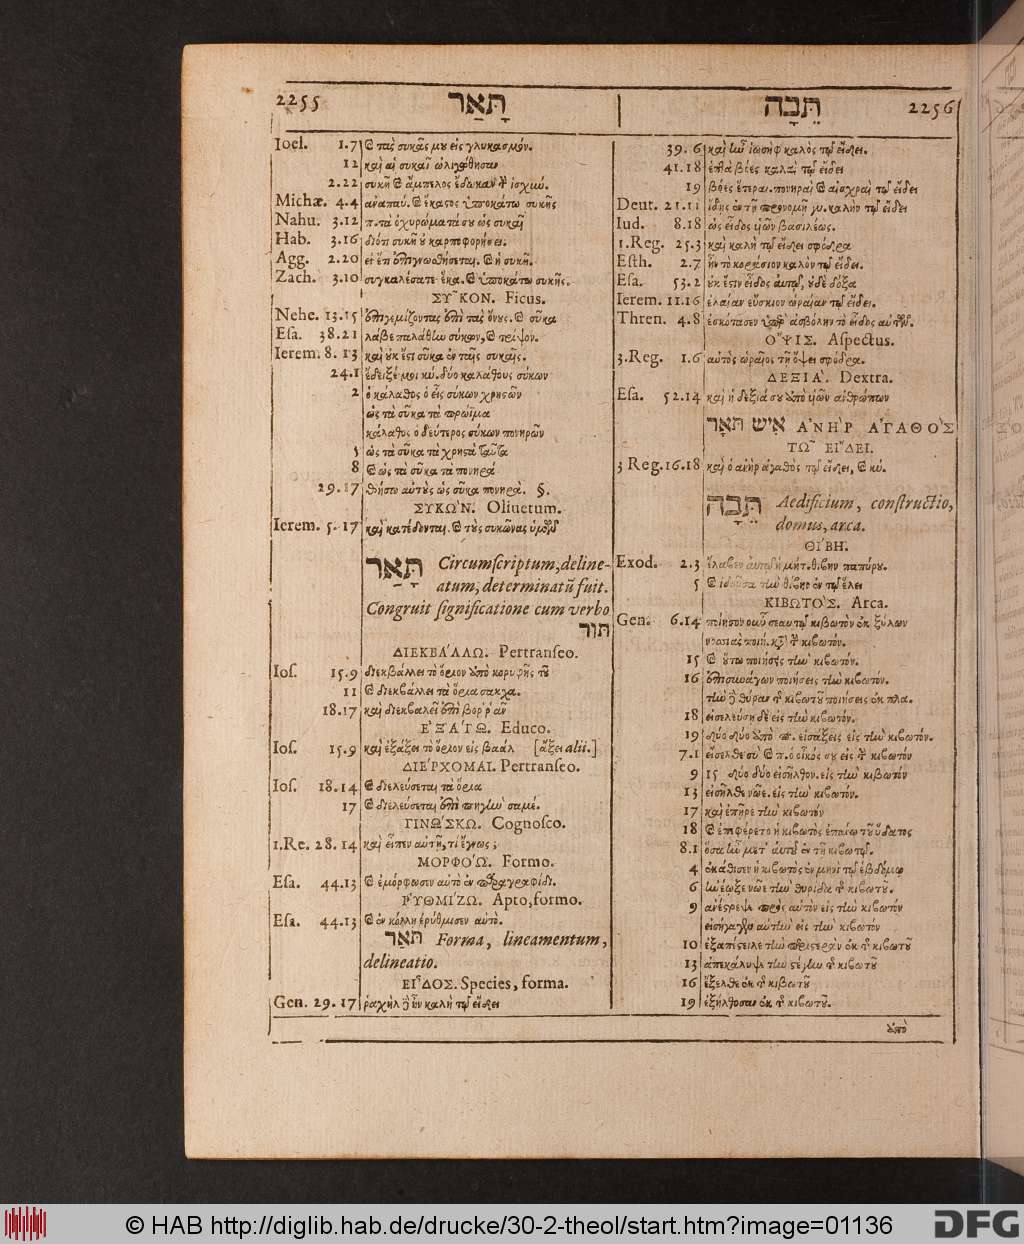 2255 תָּאַר
Ioel. 1.7 ϗ τὰς συκᾶς μου εἰς γλυκασμόν.
12 καὶ αἱ συκαῖ ὠλιγώθησαν
2.22 συκῆ ϗ ἄμπελος ἔδωκαν τ̀ ἰσχιώ.
Michæ. 4.4 ἀναπαύ. ϗ ἕκαστος ὑποκάτω συκῆς
Nahu. 3.12 π. τὰ ὀχυρώματά σου ὡς συκαῖ
Hab. 3.16 διότι συκῆ οὐ καρποφορήσει.
Agg. 2.20 εἰ ἔτι ἐπιγνωσθήσεται. ϗ ἡ συκῆ.
Zach. 3.10 συγκαλέσατε ἕκα. ϗ ὑποκάτω συκῆς.
ΣΥ͂ΚΟΝ. Ficus.
Nehe. 13.15 ἐπιγεμίζοντας ἐπὶ τοὺς ὄνους. ϗ σῦκα
Esa. 38.21 λάβε παλάθην σύκων, ϗ τρίψον.
Ierem. 8.13 καὶ οὐκ ἔστι σῦκα ἐν ταῖς συκαῖς.
24.1 ἔδειξέ μοι κύ. δύο καλάθους σύκων
2 ὁ κάλαθος ὁ εἷς σύκων χρηστῶν
ὡς τὰ σῦκα τὰ πρώϊμα
κάλαθος ὁ δεύτερος σύκων πονηρῶν
5 ὡς τὰ σῦκα τὰ χρηστὰ ταῦτα
8 ϗ ὡς τὰ σῦκα τὰ πονηρὰ
29.17 θήσω αὐτοὺς ὡς σῦκα πονηρά. §.
ΣΥΚΩ'Ν. Oliuetum.
Ierem. 5.17 καὶ κατέδονται. ϗ τοὺς συκῶνας ὑμῶν
תָּאַר Circumscriptum, deline-
atum, determinatū fuit.
Congruit significatione cum verbo
תור
ΔΙΕΚΒΑ'ΛΛΩ. Pertranseo.
Ios. 15.9 διεκβάλλει τὸ ὅριον ἀπὸ κορυφῆς τοῦ
11 ϗ διεκβάλλει τὰ ὅρια σακχα.
18.17 καὶ διεκβαλεῖ ἐπὶ βορρᾶν
Ε'ΞΑ'ΓΩ. Educo.
Ios. 15.9 καὶ ἐξάξει τὸ ὅριον εἰς βαὰλ [ἄξει alii.]
ΔΙΕ'ΡΧΟΜΑΙ. Pertranseo.
Ios. 18.14 ϗ διελεύσεται τὰ ὅρια
17 ϗ διελεύσεται ἐπὶ πηγὴν σαμέ.
ΓΙΝΩ'ΣΚΩ. Cognosco.
1.Re. 28.14 καὶ εἶπεν αὐτῇ, τί ἔγνως;
ΜΟΡΦΟ'Ω. Formo.
Esa. 44.13 ϗ ἐμόρφωσεν αὐτὸ ἐν παραγραφίδι.
ΡΎΘΜΙ'ΖΩ. Apto, formo.
Esa. 44.13 ϗ ἐν κόλλῃ ἐρύθμισεν αὐτό.
תֹּאַר Forma, lineamentum,
delineatio.
ΕΙ῏ΔΟΣ. Species, forma.
Gen. 29.17 ῥαχὴλ δὲ ἦν καλὴ τῷ εἴδει
תֵּבָה 2256
39.6 καὶ ἦν ἰωσὴφ καλὸς τῷ εἴδει.
41.18 ἑπτὰ βόες καλαὶ τῷ εἴδει
19 βόες ἕτεραι. πονηραὶ ϗ αἰσχραὶ τῷ εἴδει
Deut. 21.11 ἴδῃς ἐν τῇ προνομῇ γυ. καλὴν τῷ εἴδει
Iud. 8.18 ὡς εἶδος υἱῶν βασιλέως.
1.Reg. 25.3 καὶ καλὴ τῷ εἴδει σφόδρα
Esth. 2.7 ἦν τὸ κοράσιον καλὸν τῷ εἴδει.
Esa. 53.2 οὐκ ἔστιν εἶδος αὐτῷ, οὐδὲ δόξα
Ierem. 11.16 ἐλαίαν εὔσκιον ὡραίαν τῷ εἴδει.
Thren. 4.8 ἐσκότασεν ὑπὲρ ἀσβόλην τὸ εἶδος αὐτῶν.
Ο῎ΨΙΣ. Aspectus.
3.Reg. 1.6 αὐτὸς ὡραῖος τῇ ὄψει σφόδρα.
ΔΕΞΙΑ'. Dextra.
Esa. 52.14 καὶ ἡ δεξιά σου ἀπὸ υἱῶν ἀνθρώπων
אִישׁ תֹּאַר Α'ΝΗ'Ρ Α'ΓΑΘΟ'Σ
ΤΩ͂ ΕΙ῎ΔΕΙ.
3 Reg. 16.18 καὶ ὁ ἀνὴρ ἀγαθὸς τῷ εἴδει, ϗ κύ.
תֵּבָה Aedificium, constructio,
domus, arca.
ΘΙ'ΒΗ.
Exod. 2.3 ἔλαβεν αὐτῷ ἡ μήτ. θίβην παπύρου.
5 ϗ ἰδοῦσα τὴν θίβην ἐν τῷ ἕλει
ΚΙΒΩΤΟ'Σ. Arca.
Gen. 6.14 ποίησον οὖν σεαυτῷ κιβωτὸν ἐκ ξύλων
νοσσιὰς ποιή. κατὰ τ̀ κιβωτόν.
15 ϗ οὕτω ποιήσεις τὴν κιβωτόν.
16 ἐπισυνάγων ποιήσεις τὴν κιβωτόν.
τὴν δὲ θύραν τ̃ κιβωτοῦ ποιήσεις ἐκ πλα.
18 εἰσελεύσῃ δὲ εἰς τὴν κιβωτόν.
19 δύο δύο ἀπὸ π. εἰσάξεις εἰς τὴν κιβωτόν.
7.1 εἴσελθε σὺ ϗ π. ὁ οἶκός σου εἰς τ̀ κιβωτόν
9 15 δύο δύο εἰσῆλθον. εἰς τὴν κιβωτόν
13 εἰσῆλθε νῶε. εἰς τὴν κιβωτόν.
17 καὶ ἐπῆρε τὴν κιβωτόν
18 ϗ ἐπεφέρετο ἡ κιβωτὸς ἐπάνω τοῦ ὕδατος
8.1 ὅσα ἦν μετ' αὐτοῦ ἐν τῇ κιβωτῷ.
4 ἐκάθισεν ἡ κιβωτὸς ἐν μηνὶ τῷ ἑβδόμῳ
6 ἠνέῳξε νῶε τὴν θυρίδα τ̃ κιβωτοῦ.
9 ἀνέστρεψε πρὸς αὐτὸν εἰς τὴν κιβωτόν
εἰσήγαγεν αὐτὴν εἰς τὴν κιβωτόν
10 ἐξαπέστειλε τὴν περιστερὰν ἐκ τ̃ κιβωτοῦ
13 ἀπεκάλυψε τὴν στέγην τ̃ κιβωτοῦ
16 ἔξελθε ἐκ τ̃ κιβωτοῦ
19 ἐξήλθοσαν ἐκ τ̃ κιβωτοῦ.
ἀπὸ
© HAB http://diglib.hab.de/drucke/30-2-theol/start.htm?image=01136
DFG